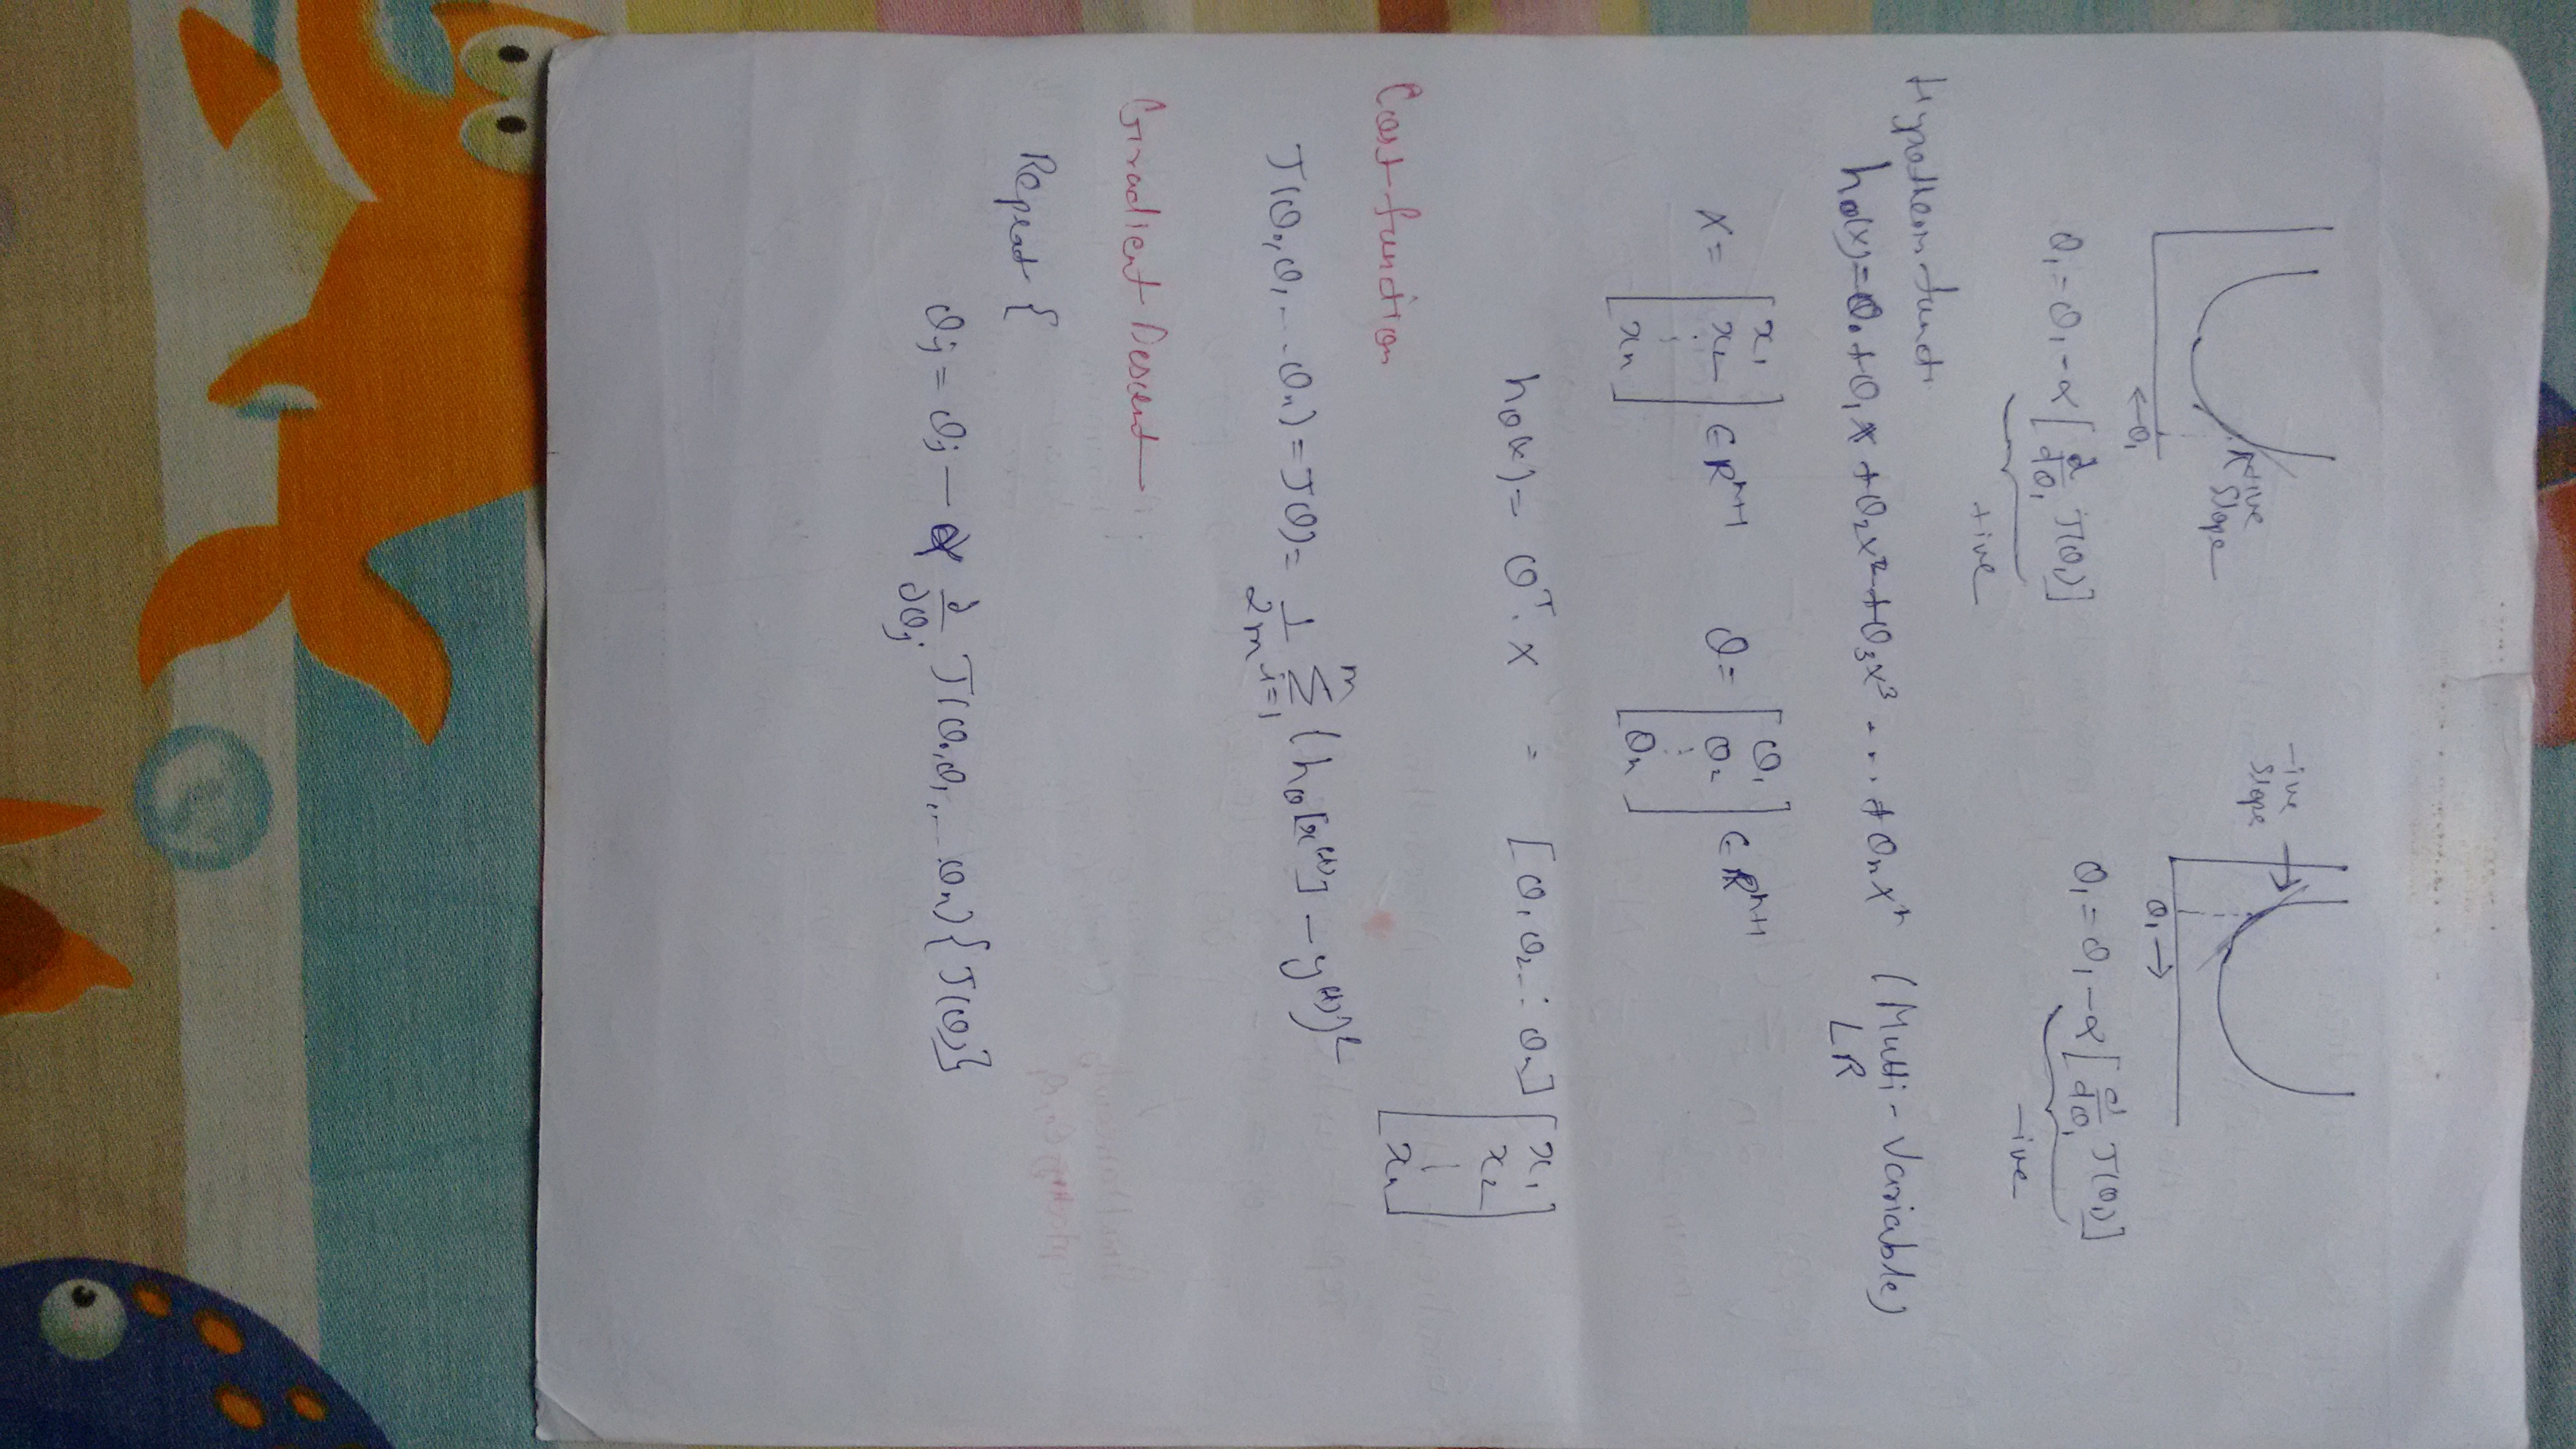 +ive
Slope
←θ₁
θ₁ = θ₁ - α [ d/dθ₁ J(θ₁) ]
+ive
-ive
Slope
θ₁ →
θ₁ = θ₁ - α [ d/dθ₁ J(θ₁) ]
-ive
Hypothesis functi
hθ(x) = θ₀ + θ₁x + θ₂x² + θ₃x³ .... + θₙxⁿ (Multi-Variable)
LR
X = [ x₁ x₂ ⋮ xₙ ] ∈ Rⁿ⁺¹ θ = [ θ₁ θ₂ ⋮ θₙ ] ∈ Rⁿ⁺¹
hθ(x) = θᵀ. X = [ θ₁ θ₂ ... θₙ ] [ x₁ x₂ | xₙ ]
Cost function
J(θ₀,θ₁ ... θₙ) = J(θ) = 1/2m Σᵢ₌₁ᵐ (hθ[x⁽ⁱ⁾] - y⁽ⁱ⁾)²
Gradient Descent
Repeat {
θj = θj - α ∂/∂θj J(θ₀,θ₁,... θₙ) { J(θ) }